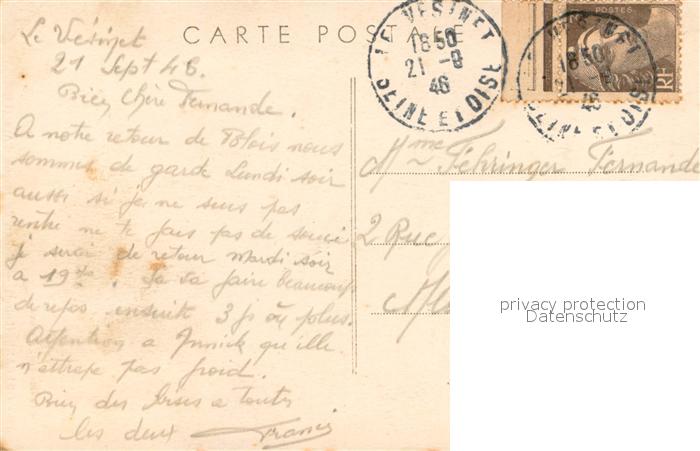 CARTE POSTALE
LE VESINET
18 50
21 -9
46
SEINE ET OISE
LE VESINET
18 50
46
SEINE ET OISE
POSTES
RF
Le Vésinet
21 Sept 46.
Bien Chère Fernande.
A notre retour de Blois nous
sommes de garde Lundi soir
aussi si je ne suis pas
rentré ne te fais pas de souci
je serai de retour mardi soir
a 19h. Sa va faire beaucoup
de repos ensuite 3 js ou plus.
Attention a Annick qu'ille
n'attrape pas froid.
Bien des bises a toutes
les deux Francis
Mme Fehringer Fernande
2 Rue
privacy protection
Datenschutz